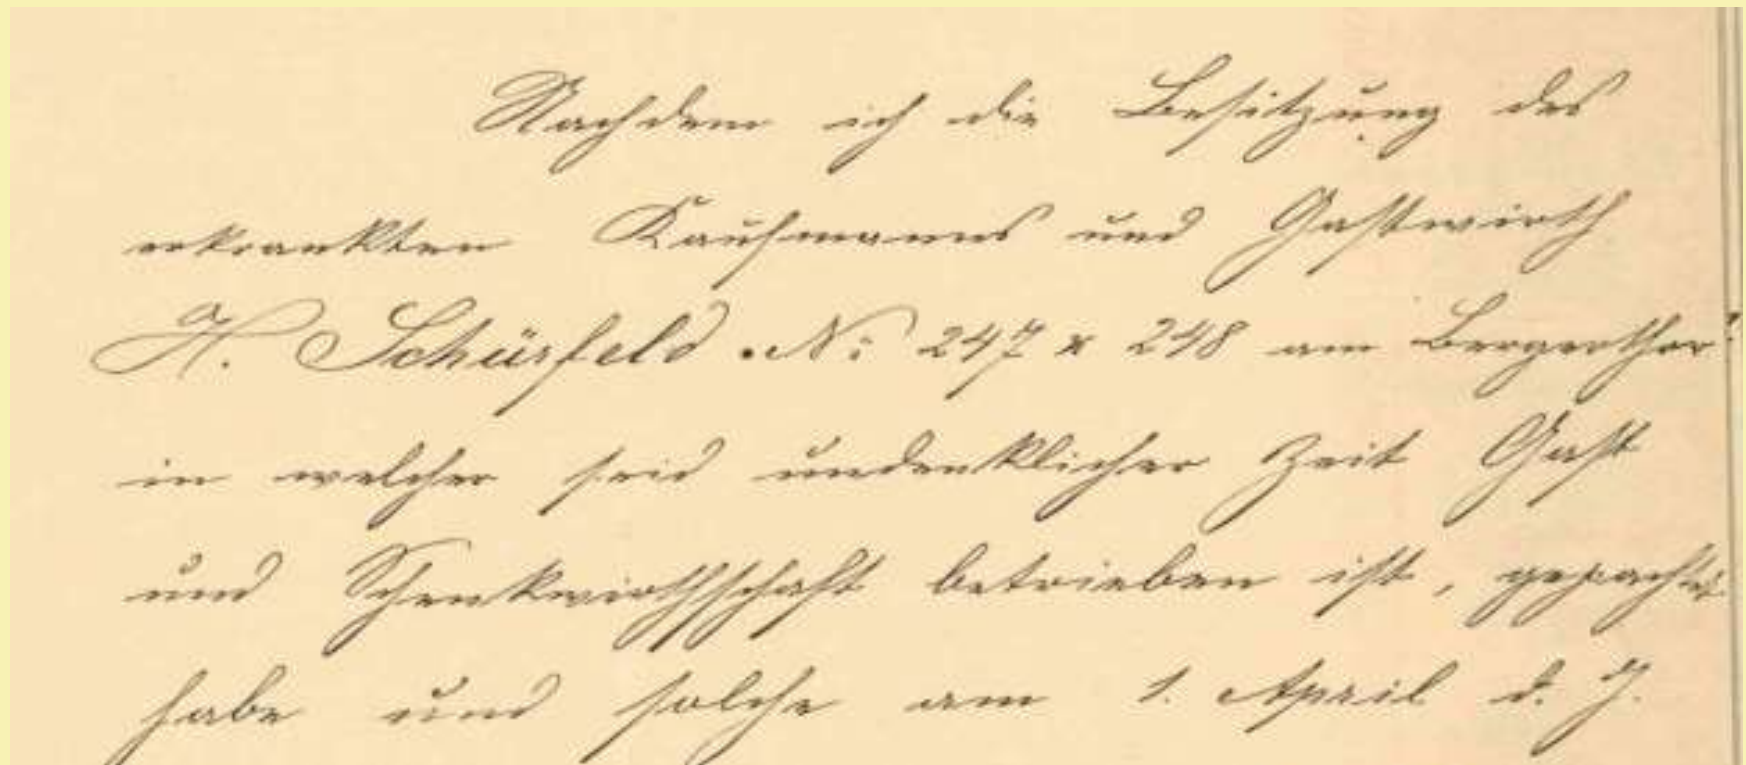 Nachdem ich die Besitzung des
erkrankten Kaufmanns und Gastwirth
H. Schürfeld No: 247 & 248 am Bergerthor
in welcher seid undenklicher Zeit Gast
und Schenkwirthschaft betrieben ist, gepachtet
habe und solche am 1. April d. J.